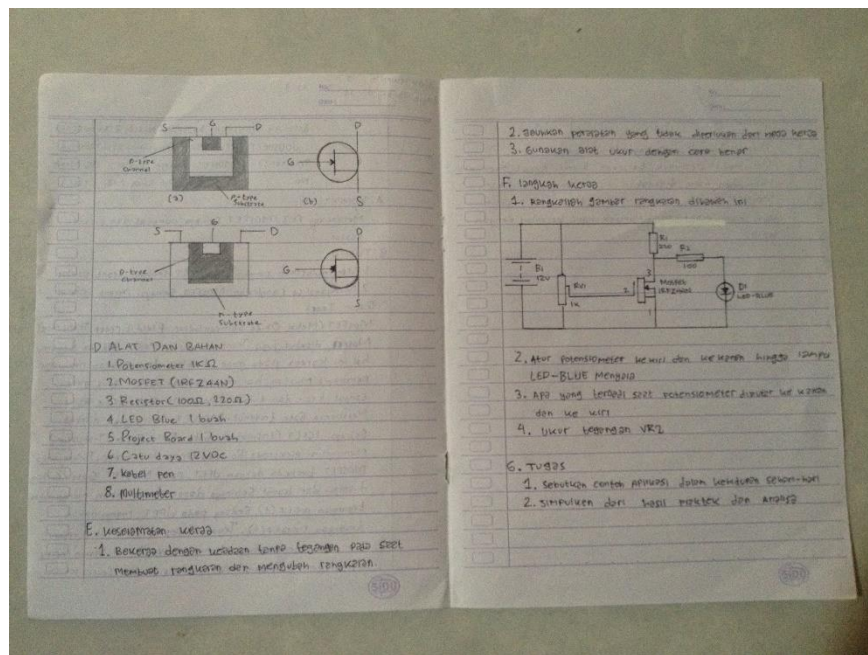 S G D
n-type
Channel
P-type
Substrate
(a)
D
G
S
(b)
G
S D
P-type
Channel
n-type
Substrate
D
G
S
D. ALAT DAN BAHAN
1. Potensiometer 1KΩ
2. MOSFET (IRFZ44N)
3. Resistor (100Ω, 220Ω)
4. LED Blue 1 buah
5. Project Board 1 buah
6. Catu daya 12VDC
7. Kabel pen
8. Multimeter
E. Keselamatan kerja
1. Bekerja dengan keadaan tanpa tegangan pada saat
membuat rangkaian dan mengubah rangkaian.
SIDU
2. Jauhkan peralatan yang tidak diperlukan dari meja kerja
3. Gunakan alat ukur dengan cara benar
F. langkah kerja
1. Rangkailah gambar rangkaian dibawah ini
B1
12V
RV1
1K
R1
R2
100
3
2
1
Mosfet
D1
LED-BLUE
2. Atur potensiometer ke kiri dan ke kanan hingga lampu
LED-BLUE Menyala
3. Apa yang terjadi saat potensiometer diputar ke kanan
dan ke kiri
4. Ukur tegangan VR2
G. Tugas
1. Sebutkan contoh aplikasi dalam kehidupan sehari-hari
2. Simpulkan dari hasil praktek dan
SIDU